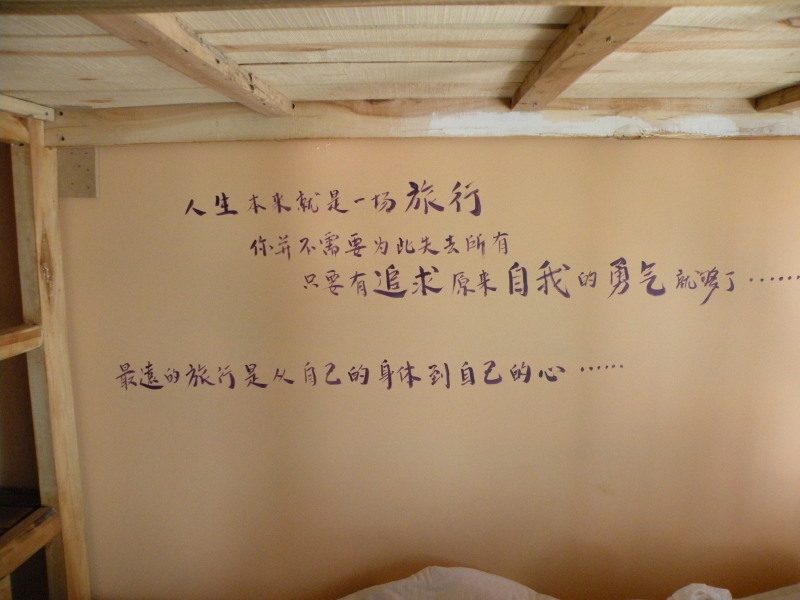 人生本来就是一场旅行
你并不需要为此失去所有
只要有追求原来自我的勇气就够了……
最遠的旅行是从自己的身体到自己的心……